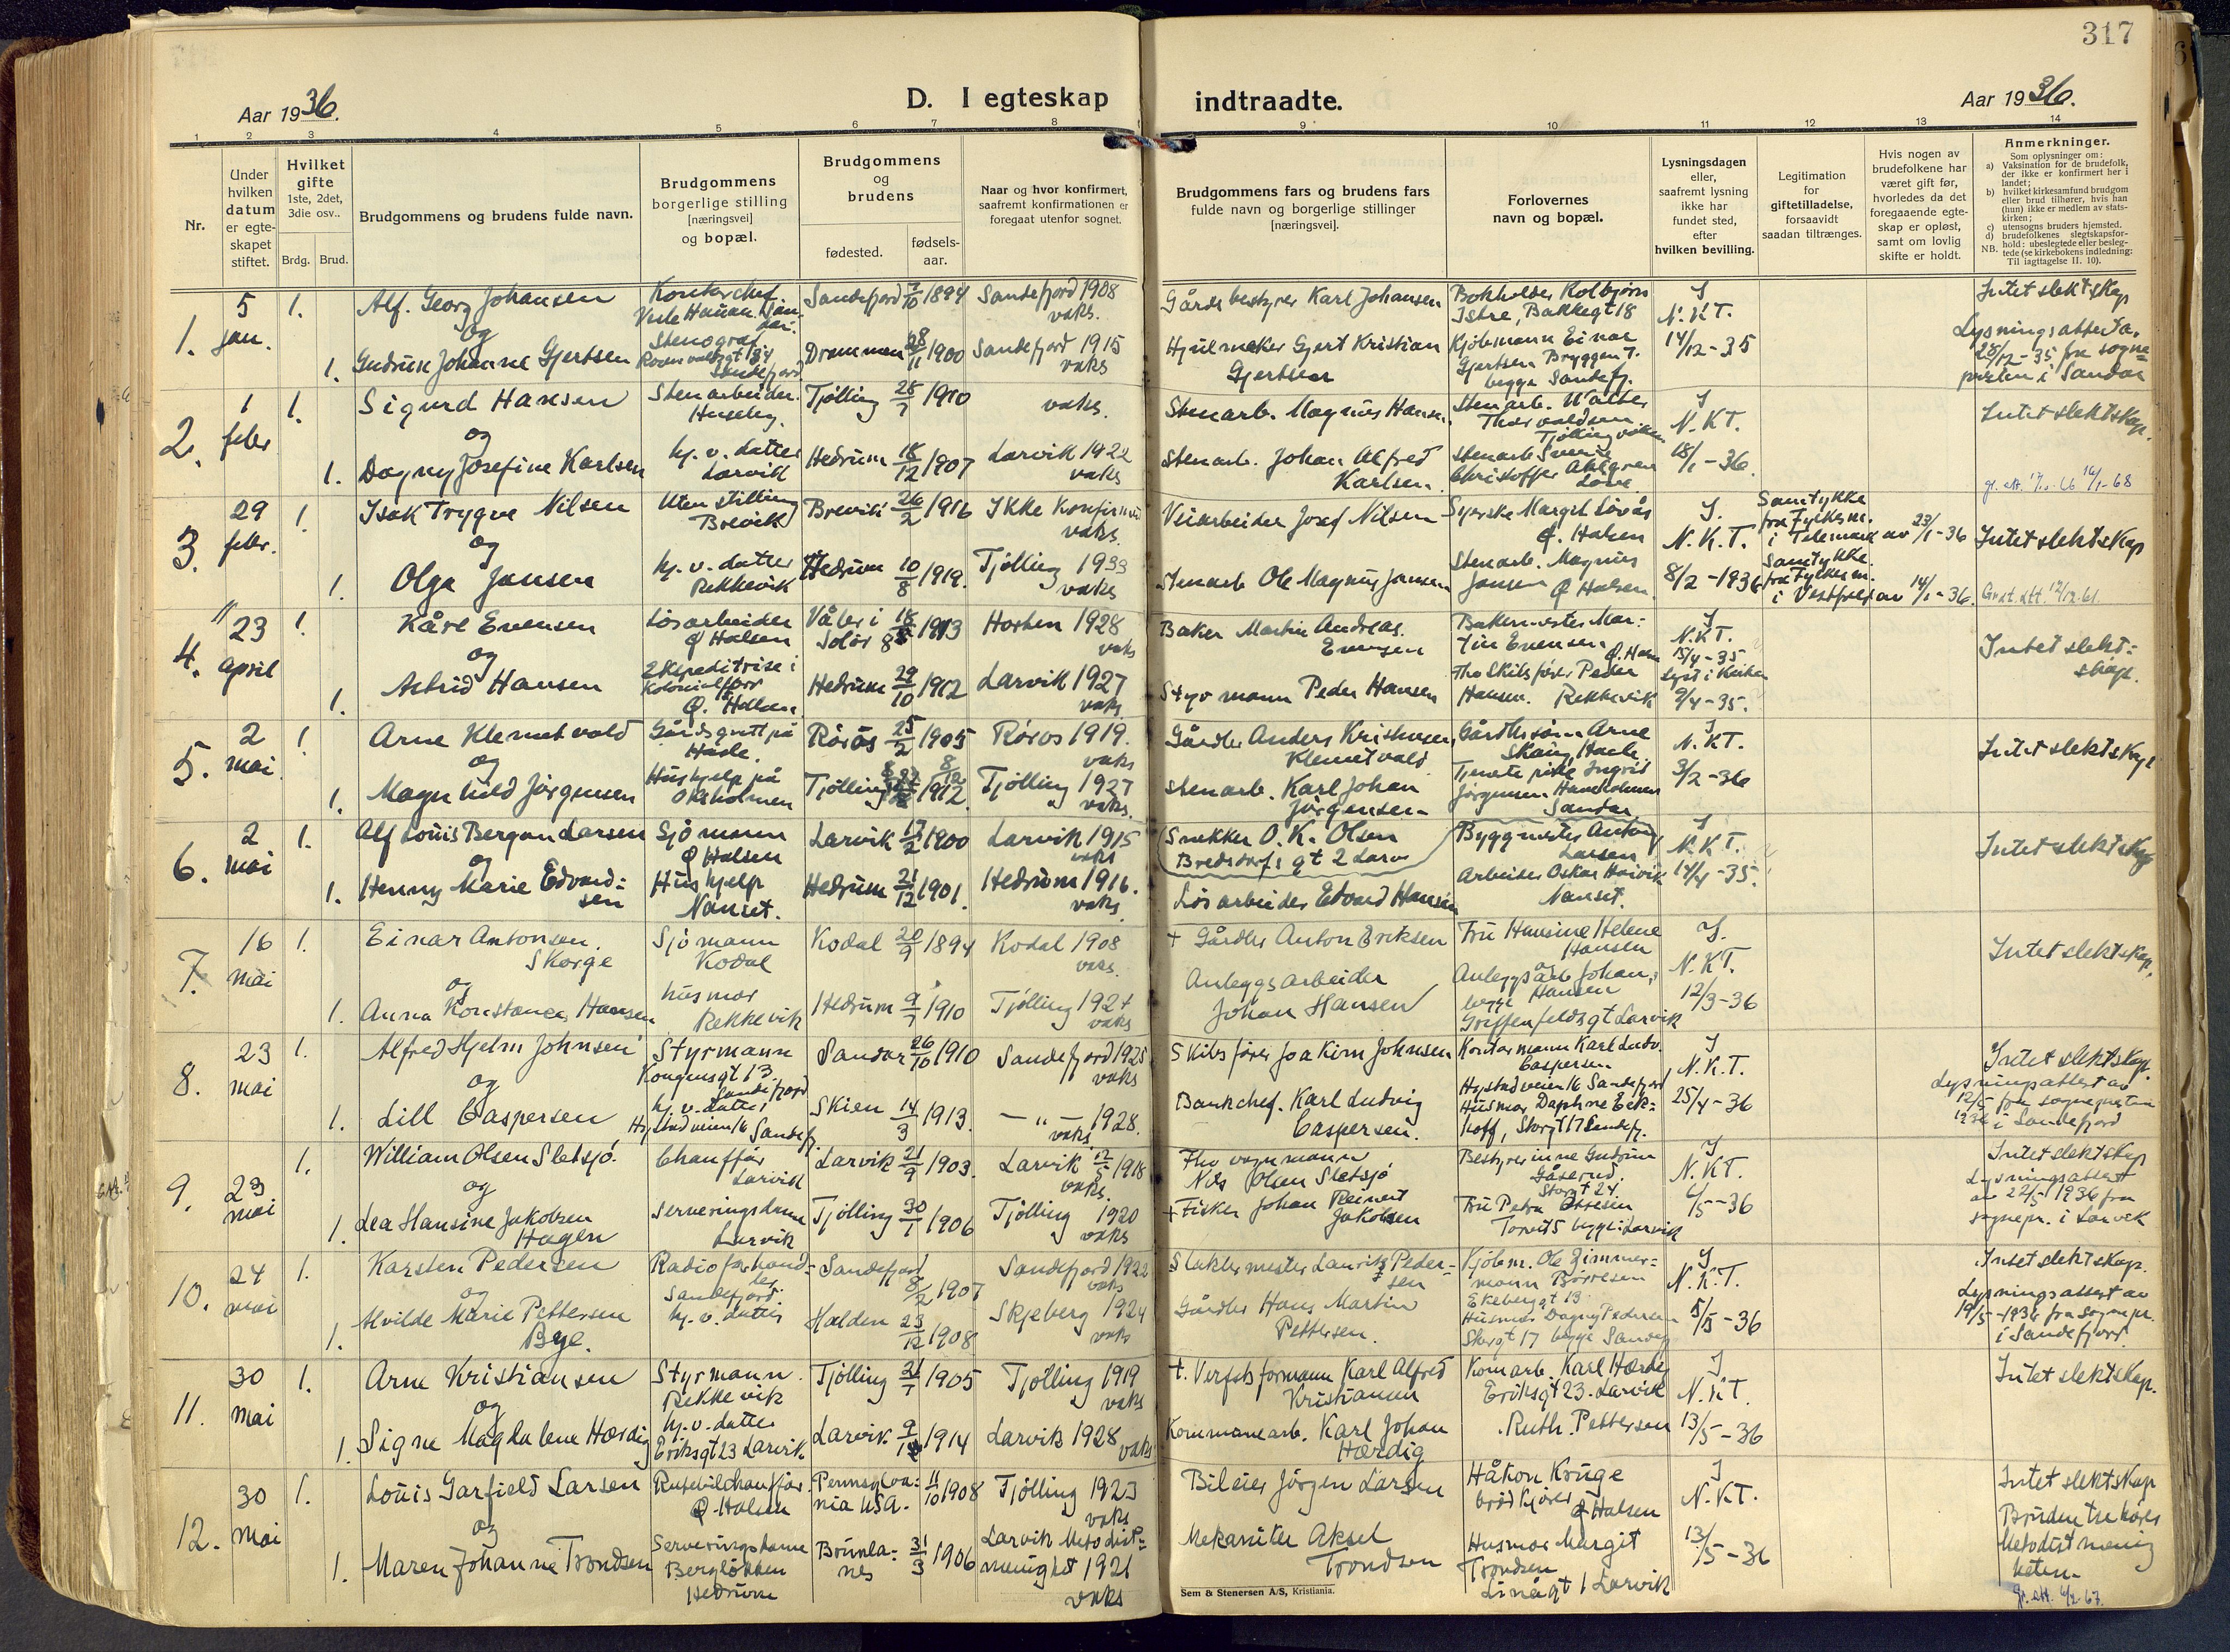 317
Aar 1936.
D. I egteskap indtraadte.
Aar 1936.
1 2 3 4 5 6 7 8 9 10 11 12 13 14
Nr.
Under hvilken datum er egte-skapet stiftet.
Hvilket gifte 1ste, 2det, 3die osv..
Brdg. Brud.
Brudgommens og brudens fulde navn.
Brudgommens borgerlige stilling [næringsvei] og bopæl.
Brudgommens og brudens
fødested.
fødsels-aar.
Naar og hvor konfirmert, saafremt konfirmationen er foregaat utenfor sognet.
Brudgommens fars og brudens fars fulde navn og borgerlige stillinger [næringsvei].
Forlovernes navn og bopæl.
Lysningsdagen eller, saafremt lysning ikke har fundet sted, efter hvilken bevilling.
Legitimation for giftetilladelse, forsaavidt saadan tiltrænges.
Hvis nogen av brudefolkene har været gift før, hvorledes da det foregaaende egte-skap er opløst, samt om lovlig skifte er holdt.
Anmerkninger.
Som oplysninger om:
a) Vaksination for de brudefolk, der ikke er konfirmert her i landet;
b) hvilket kirkesamfund brudgom eller brud tilhører, hvis han (hun) ikke er medlem av stats-kirken;
c) utensogns bruders hjemsted.
d) brudefolkenes slegtskapsfor-hold: ubeslegtede eller besleg-tede (se kirkebokens indledning:
NB. Til iagttagelse II. 10).
1. 5 jan. 1. Alf. Georg Johansen Kontorchef Sandefjord 1894 Sandefjord 1908 vaks.
Gårdsbestyrer Karl Johansen Bokholder Kolbjørn Istre, Bakkegt 18 J N.K.T. Intet slektskap
og
1. Gudrun Johanne Gjertsen Stenograf Sandefjord Drammen 1900 Sandefjord 1915 vaks
Hjulmaker Gjert Kristian Gjertsen Kjøbmann Einar Gjertsen Bryggen 7. begge Sandefj. 14/12-35 Lysningsattest av 28/12-35 fra sogne= presten i Sandar
2. 1 febr 1. Sigurd Hansen Stenarbeider. Huseby. Tjølling 28/7 1910 vaks.
Stenarb. Magnus Hansen Stenarb. Walter Thorvaldsen J N.K.T. Intet slektskap.
og
1. Dagny Josefine Karlsen hj. v. datter Larvik Hedrum 18/12 1907 Larvik 1922 vaks
Stenarb. Johan Alfred Karlsen Christoffer Ahlgren 18/1-36.
3. 29 febr. 1. Isak Trygve Nilsen Uten stilling Brevik Brevik 26/2 1916 Ikke konfirmert vaks.
Veiarbeider Josef Nilsen Syerske Margit Lövås Ø. Halsen J. N.K.T. Samtykke fra Fylkesm. i Telemark av 23/1-36 Intet slektskap
og
1. Olga Jansen hj. v. datter Rekkevik Hedrum 10/8 1919. Tjølling 1933 vaks
Stenarb Ole Magnus Jansen Stenarb. Magnus Jansen Ø Halsen. 8/2-1936 Samtykke fra Fylkesm. i Vestfold av 14/1-36.
4. 23 april 1. Kåre Evensen Løsarbeider Ø Halsen Våler i Solør 1913 Horten 1928 vaks
Baker Martin Andreas. Evensen Bakermester Mar= tin Evensen. Ø. Halsen J N.K.T. Intet slekt= skap.
og
1. Astrid Hansen Ekspeditrise i Kolonialforr Ø. Halsen Hedrum 29/10 1912 Larvik 1927 vaks.
Styrmann Peder Hansen Fhv Skibsfører Peder Hansen. Rekkevik lyst i Kirken 9/4-35.
5. 2 mai 1. Arne Klemetvold Gårdsgutt på Hasle. Røros 25/2 1905 Røros 1919. vaks
Klemetvold Gårdbr.søn Arne J N.K.T. Intet slektskap
og
1. Magnhild Jørgensen Hushjelp på Tjølling 1912 Tjølling 1927 vaks.
Stenarb. Karl Johan Jørgensen Tjenestepike Ingrid Jørgensen Sandar 3/2-36
6. 2 mai 1. Alf Louis Bergan Larsen Sjømann Ø Halsen Larvik 17/2 1900 Larvik 1915 vaks
Snekker O. K. Olsen Bredsdorfs gt 2 Larv Byggmester Anton Larsen J N.K.T. Intet slektskap
og
1. Henny Marie Edvard= sen Hushjelp Nanset. Hedrum 21/12 1901. Hedrum 1916. vaks.
Løsarbeider Edvard Hansen Arbeider Oskar Nanset. 14/4-35.
7. 16 mai 1. Einar Antonsen. Skorge Sjømann Kodal Kodal 20/9 1894 Kodal 1908 vaks.
+ Gårdbr Anton Eriksen Fru Hansine Helene Hansen J. N.K.T. Intet slektskap.
og
1. Anna Konstance Hansen husmor Rekkevik Hedrum 9/7 1910 Tjølling 1924 vaks
Anleggsarbeider Johan Hansen Anleggsarb Johan Hansen begge Griffenfeldsgt Larvik 12/3-36
8. 23 mai 1. Alfred Hjelm Johnsen Styrmann Kongensgt 13 Sandefjord Sandar 26/10 1910 Sandefjord 1925 vaks
Skibsfører Joakim Johnsen Kontormann Karl Ludv. Caspersen Hystadveien 16 Sandefjord J N.K.T. Intet slektskap.
og
1. Lill Caspersen hj. v. datter Hystadveien 16 Sandefj. Skien 14/3 1913. — " — 1928. vaks.
Bankchef. Karl Ludvig Caspersen. Husmor Daphne Eck= hoff, Storgt 17 Sandefj. 25/4-36 Lysningsattest av 12/5 1936 fra sognepresten i Sandefjord
9. 23 mai 1. William Olsen Sletsjø. Chauffør Larvik Larvik 21/9 1903. Larvik 1918 vaks.
Fhv vognmann Nils Olsen Sletsjø Bestyrerinne Gudrun Gåserud. Storgt 24. J N.K.T. Intet slektskap
og
1. Lea Hansine Jakobsen Hagen Serveringsdame Larvik Tjølling 30/1 1906 Tjølling 1920 vaks
+ Fisker Johan Reinert Jakobsen Fru Petra Torvet 5 begge Larvik 6/5-36 Lysningsattest av 22/5 1936 fra sognepr. i Larvik
10. 24 mai 1. Karsten Pedersen Radioforhand= ler Sandefjord. Sandefjord 8/2 1907 Sandefjord 1922 vaks
Slaktermester Lauritz Peder= sen Kjøbm. Ole Zimmer= mann Børresen Ekebergt 13 J N.K.T. Intet slektskap.
og
1. Alvilde Marie Pettersen Bye. hj. v. datter Halden 23/12 1908 Skjeberg 1924 vaks
Gårdbr Hans Martin Pettersen. Husmor Dagny Pedersen Storgt 17 begge Sandefj. 5/5-36 Lysningsattest av 19/5-1936 fra sognepr. i Sandefjord
11. 30 mai 1. Arne Kristiansen Styrmann. Rekkevik Tjølling 31/7 1905 Tjølling 1919 vaks
+. Verfstsformann Karl Alfred Kristiansen Komarb. Karl Hærdig Eriksgt 23. Larvik J N.K.T. Intet slektskap.
og
1. Signe Magdalene Hærdig hj. v. datter Eriksgt 23 Larvik. Larvik. 1914 Larvik 1928 vaks
Kommunearb. Karl Johan Hærdig Ruth. Pettersen 13/5-36
12. 30 mai 1. Louis Garfield Larsen Rutebilchauffør. Ø. Halsen Pennsylva= nia USA. 11/10 1908 Tjølling 1923 vaks
Bileier Jørgen Larsen Håkon Kruge brødkjører Ø Halsen J N.K.T. Intet slektskap
og
1. Maren Johanne Trondsen Serveringsdame Bergløkken Hedrum Brunla= nes 31/3 1906 Larvik Metodist= menighet 1921 vaks
Mekaniker Aksel Trondsen Husmor Margit Trondsen Linåqt 1 Larvik 13/5-36 Bruden tilhører Metodistmenig heten.
Sem & Stenersen A/S, Kristiania.